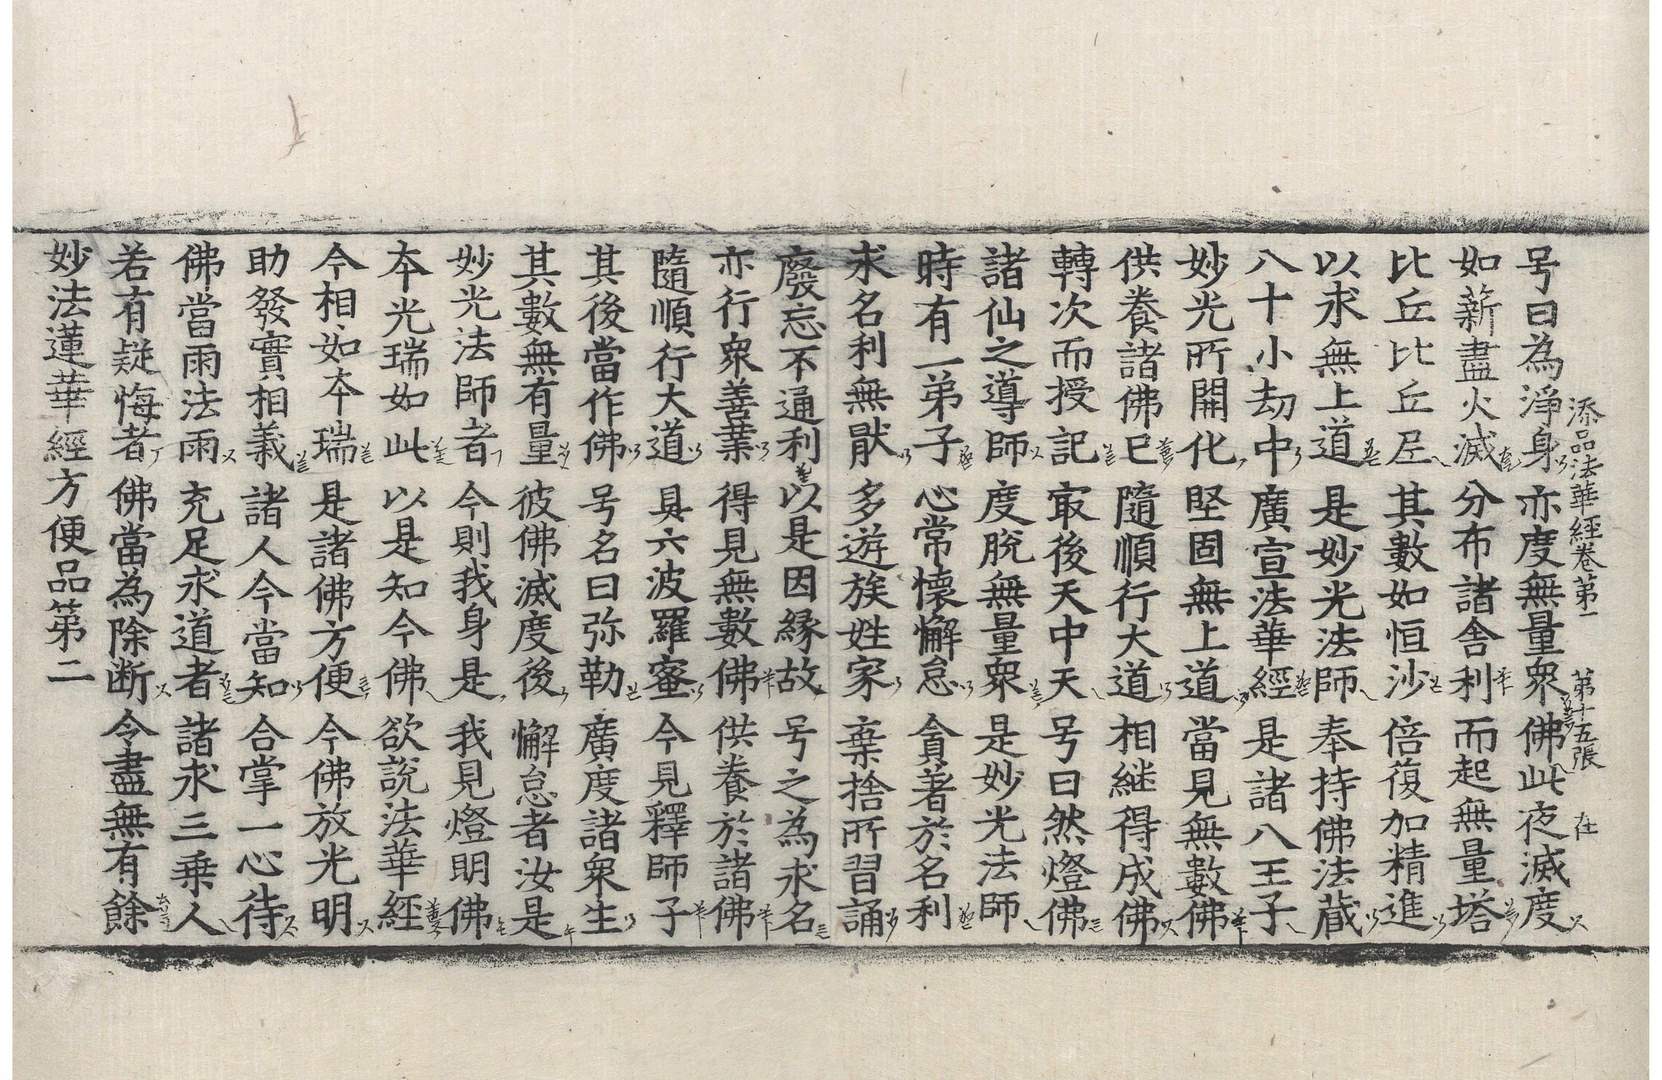 添品法華經卷第一 第十五張 在
号曰為淨身 亦度無量衆 佛此夜滅度
如薪盡火滅 分布諸舍利 而起無量塔
比丘比丘尼 其數如恒沙 倍復加精進
以求無上道 是妙光法師 奉持佛法藏
八十小劫中 廣宣法華經 是諸八王子
妙光所開化 堅固無上道 當見無數佛
供養諸佛已 隨順行大道 相継得成佛
轉次而授記 㝡後天中天 号曰然燈佛
諸仙之導師 度脫無量衆 是妙光法師
時有一弟子 心常懷懈怠 貪著於名利
求名利無猒 多遊族姓家 棄捨所習誦
廢忘不通利 以是因緣故 号之為求名
亦行衆善業 得見無數佛 供養於諸佛
隨順行大道 具六波羅蜜 今見釋師子
其後當作佛 号名曰弥勒 廣度諸衆生
其數無有量 彼佛滅度後 懈怠者汝是
妙光法師者 今則我身是 我見燈明佛
本光瑞如此 以是知今佛 欲說法華經
今相如本瑞 是諸佛方便 今佛放光明
助發實相義 諸人今當知 合掌一心待
佛當雨法雨 充足求道者 諸求三乗人
若有疑悔者 佛當為除断 令盡無有餘
妙法蓮華經方便品第二